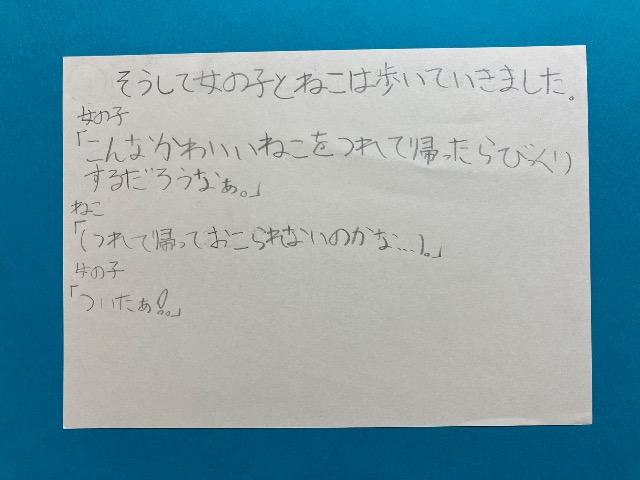 そうして女の子とねこは歩いていきました。
女の子
「こんなかわいいねこをつれて帰ったらびっくり
するだろうなぁ。」
ねこ
「(つれて帰っておこられないのかな…)。」
女の子
「ついたぁ!。。」